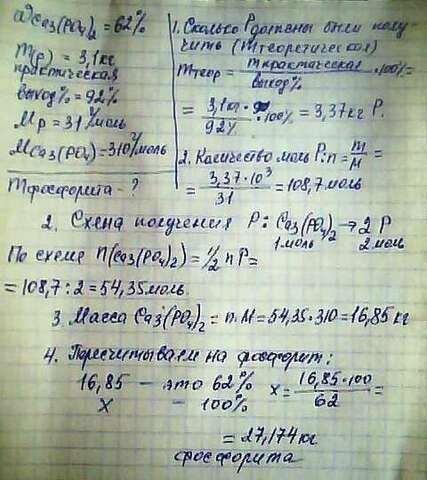 ω Ca₃(PO₄)₂ = 62%
m(p) = 3,1 кг
практическая
выход% = 92%
Mp = 31 г/моль
MCa₃(PO₄)₂ = 310 г/моль
mфосфорита - ?
1. Сколько P должны были полу-
чить (mтеоретическая)
mтеор = mпрактическая / выход% · 100% =
= 3,1 кг / 92% · 100% = 3,37 кг P.
2. Количество моль P: n = m/M =
= 3,37 · 10³ / 31 = 108,7 моль
2. Схема получения P: Ca₃(PO₄)₂ → 2 P
1 моль 2 моль
По схеме n(Ca₃(PO₄)₂) = 1/2 n P =
= 108,7 : 2 = 54,35 моль.
3. Масса Ca₃(PO₄)₂ = n · M = 54,35 · 310 = 16,85 кг
4. Пересчитываем на фосфорит:
16,85 — это 62% x = 16,85 · 100 / 62 =
x — 100%
= 27,174 кг
фосфорита